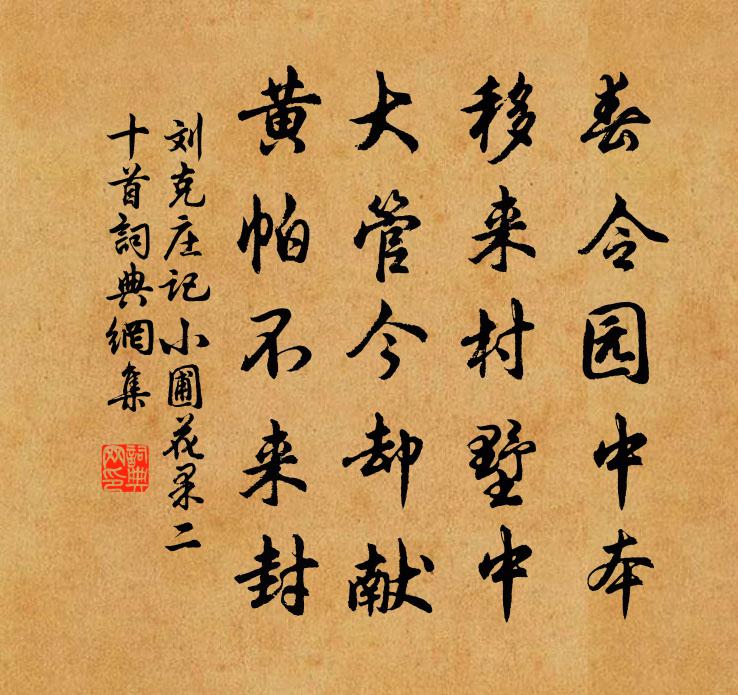 春令园中本
移来村墅中
大管今却献
黄帕不来封
刘克庄记小圃花果二
十首詞典網集
詞典
网印